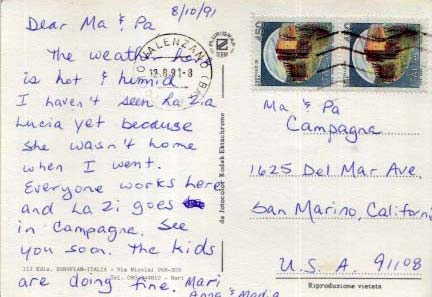 8/10/91
Dear Ma & Pa
The weather here
is hot & humid.
I haven't seen La Zia
Lucia yet because
she wasn't home
when I went.
Everyone works here
and La Zi goes
in Campagna. See
you soon. The kids
are doing fine. Mari
Anna & Madia
VALENZANO (BA)
12.8.91-8
da fotocolor Kodak Ektachrome
450
450
Ma & Pa
Campagna
1625 Del Mar Ave.
San Marino, Californi
U.S.A. 91108
Riproduzione vietata